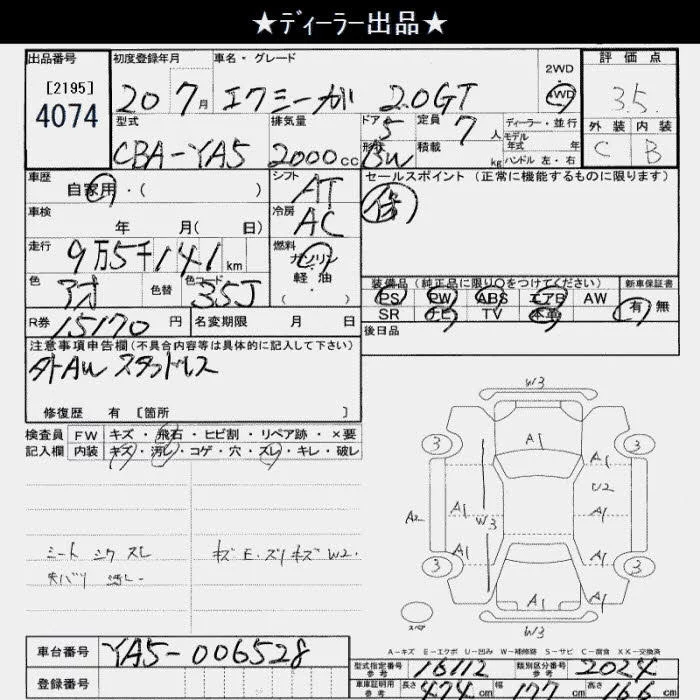 ★ディーラー出品★
出品番号 初度登録年月 車名・グレード 2WD 評価点
[2195] 4074 20 7月 エクシーガ 2.0GT 4WD 3.5
型式 排気量 ドア 定員 ディーラー・並行 外装 内装
CBA-YA5 2000cc 5 7人 モデル年式 年 C B
形状 BW 積載 kg ハンドル 左・右
車歴 自家用・( ) シフト AT セールスポイント (正常に機能するものに限ります)
車検 年 月( 日) 冷房 AC
走行 9万5千141km 燃料 ガソリン・軽油・( )
色 アオ 色替 色コード 35J 装備品 (純正品に限り○をつけてください) 新車保証書
PS PW ABS エアB AW 有 無
R券 15170円 名変期限 月 日 SR ナビ TV 本革
後日品
注意事項申告欄(不具合内容等は具体的に記入して下さい)
外AW スタットレス
修復歴 有 [箇所 ]
検査員 FW キズ・飛石・ヒビ割・リペア跡・×要
記入欄 内装 キズ・汚し・コゲ・穴・スレ・キレ・破レ
W3
3 A1 3
A1
U2
A2 A1 W3 A1
A1 A1
3 3
A1 A1
スペア
シート シワ スレ キズ E・ズリキズ W2.
A-キズ E-エクボ U-凹み W-補修跡 S-サビ C-腐食 XX-交換済
車台番号 YA5-006528
型式指定番号 参考 16112 類別区分番号 参考 2024
登録番号
車庫証明用 参考 長さ 474cm 幅 177cm 高さ 166cm